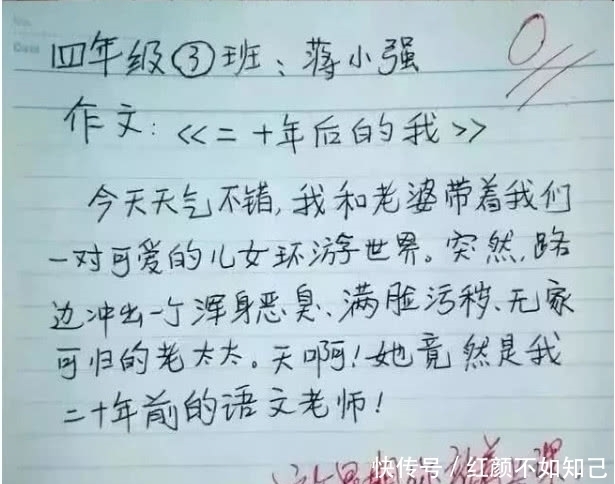 四年级③班：蒋小强
0
作文：<<二十年后的我>>
今天天气不错,我和老婆带着我们
一对可爱的儿女环游世界。突然,路
边冲出一个浑身恶臭、满脸污秽、无家
可归的老太太。天啊！她竟然是我
二十年前的语文老师！
快传号/红颜不如知己